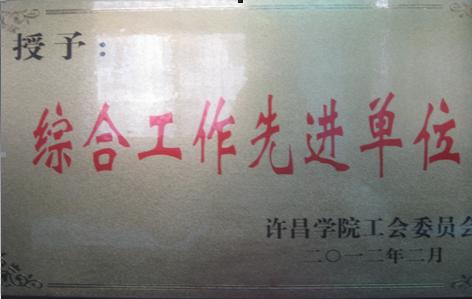 授予：
综合工作先进单位
许昌学院工会委员会
二〇一二年二月